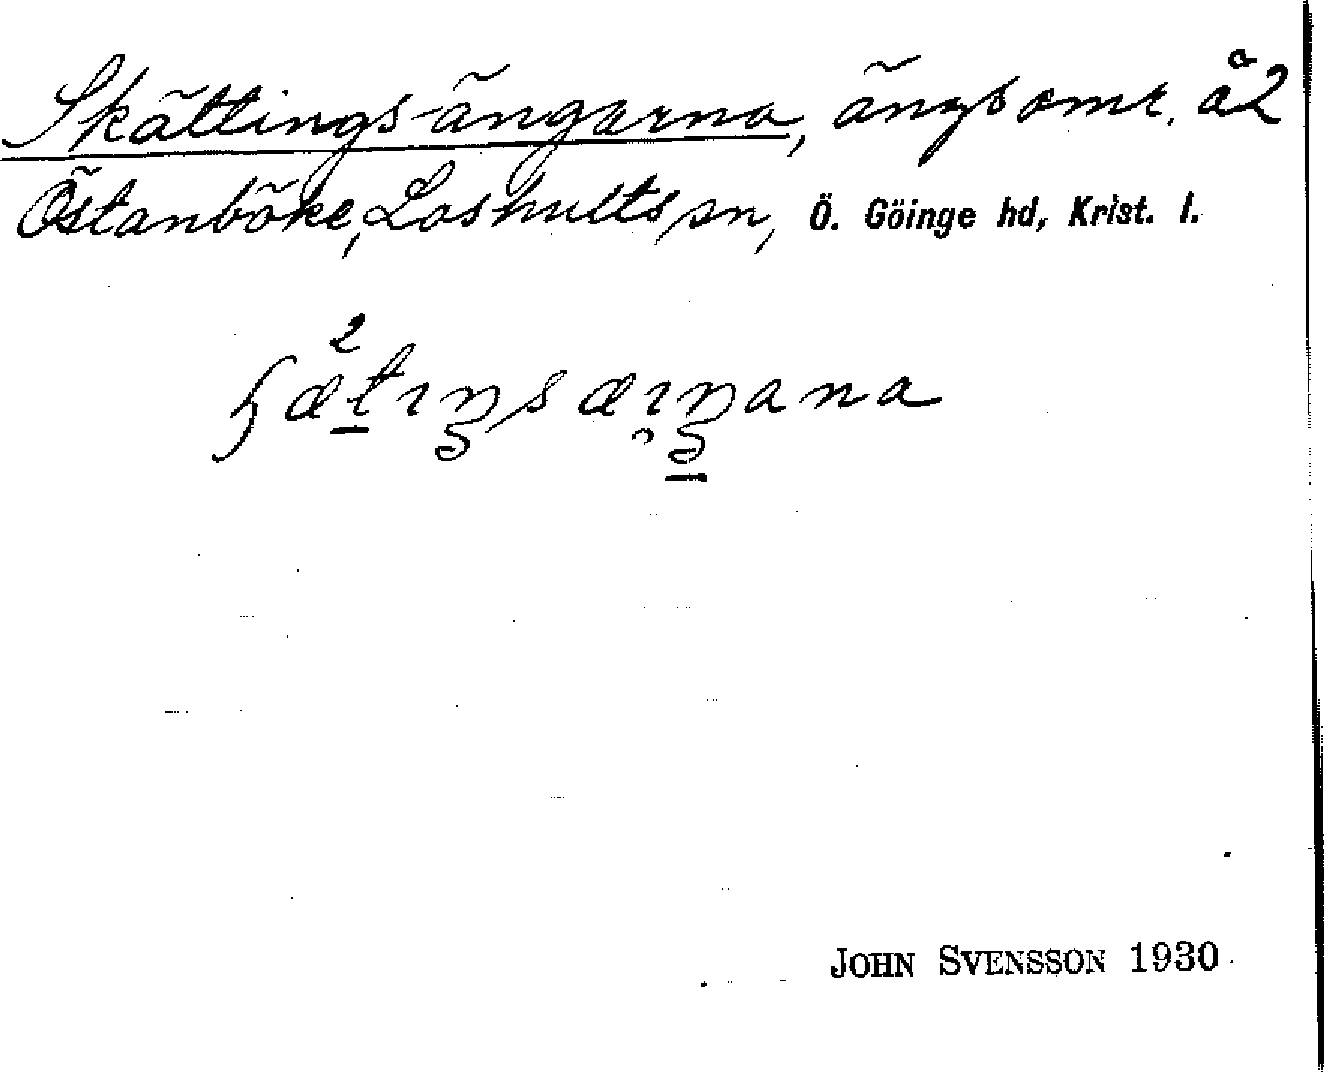 Skättings-ängarna, ängsomr. å 2
Östanböke, Loshults sn, Ö. Göinge hd, Krist. l.
JOHN SVENSSON 1930